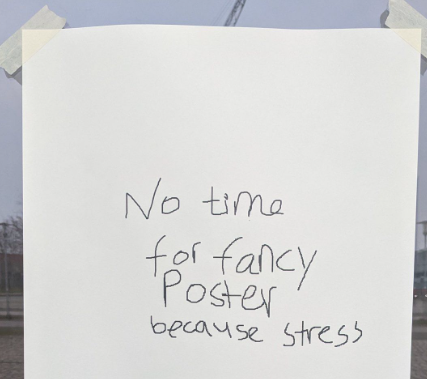 No time
for fancy
Poster
because stress